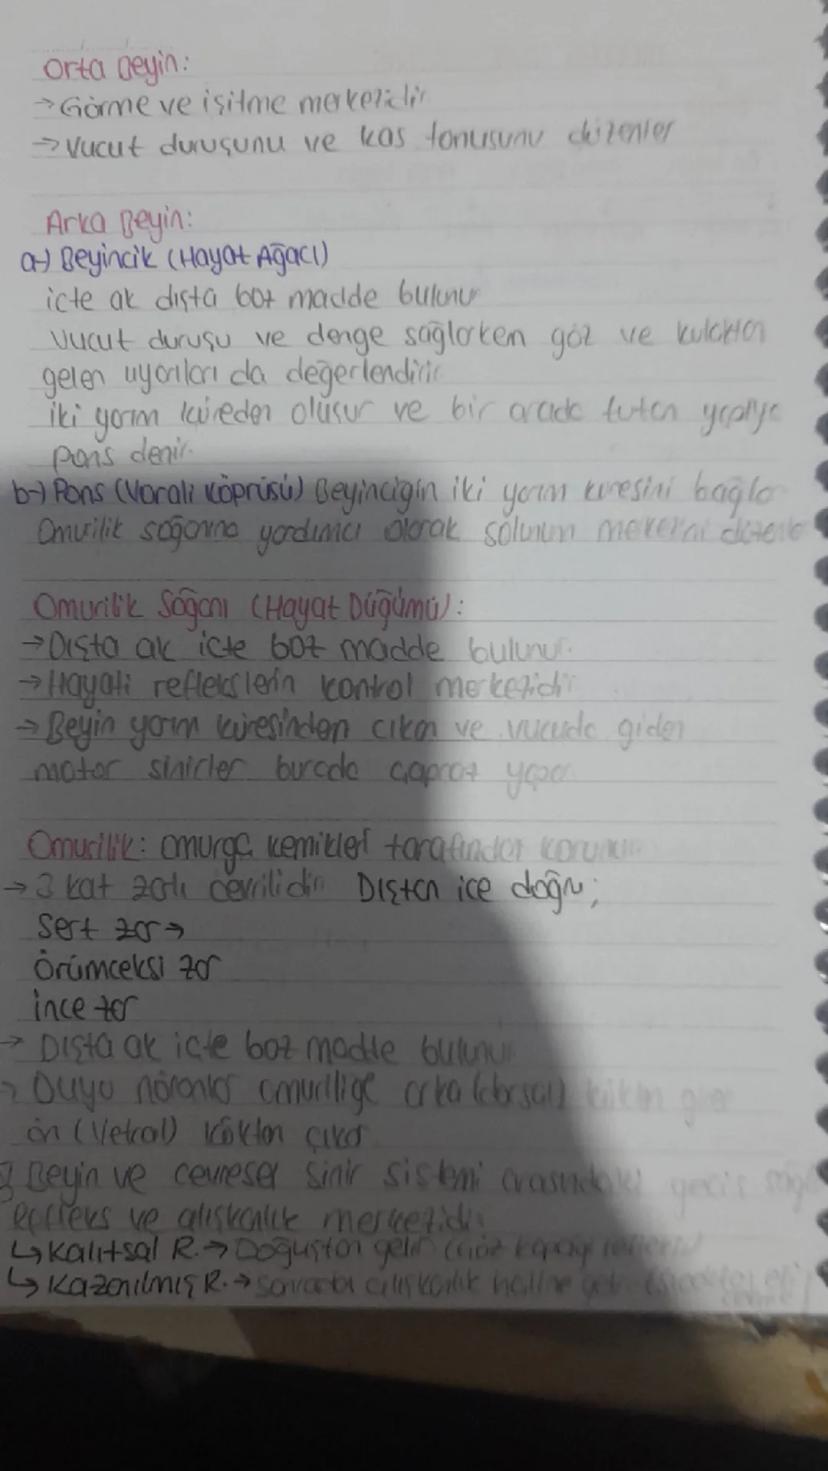 Orta Beyin:
→ Görme ve işitme merkezidir
→ Vucut duruşunu ve kas tonusunu düzenler
Arka Beyin:
a-) Beyincik (Hayat Ağacı)
içte ak dışta boz madde bulunur
Vucut duruşu ve denge sağlarken göz ve kulaktan
gelen uyarıları da değerlendirir
iki yarım küreden oluşur ve bir arada tutan yapıya
pons denir.
b-) Pons (Varoli Köprüsü) Beyinciğin iki yarım küresini bağlar
Omurilik soğanına yardımcı olarak solunum merkezini düzenler
Omurilik Soğanı (Hayat Düğümü):
→ Dışta ak içte boz madde bulunur.
→ Hayati reflekslerin kontrol merkezidir
→ Beyin yarım küresinden çıkan ve vucuda giden
motor sinirler burada çapraz yapar
Omurilik: omurga kemikleri tarafından korunur
→ 3 kat zarla çevrilidir Dıştan içe doğru;
Sert zar →
Örümceksi zar
İnce zar
→ Dışta ak içte boz madde bulunur
→ Duyu nöronlar omuriliğe arka (dorsal) kökten girer
ön (Vetral) kökten çıkar
Beyin ve çevresel sinir sistemi arasındaki geçiş
Refleks ve alışkanlık merkezidir
↳ Kalıtsal R. → Doğuştan gelir (Göz kapağı refleksi)
↳ Kazanılmış R. → Sonradan alışkanlık haline gelir